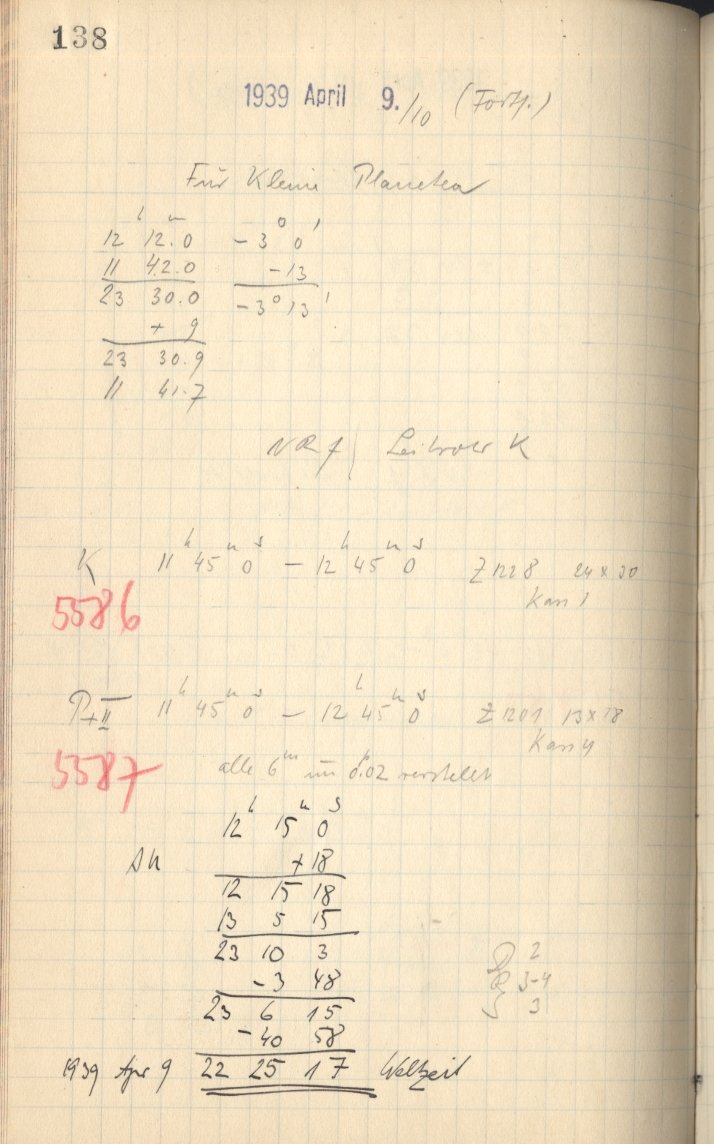 138
1939 April 9./10 (Forts.)
Für Kleine Planeten
12 h 12.0 m   − 3° 0'
11 42.0   − 13
23 30.0   − 3° 13'
+ 9
23 30.9
11 41.7
Leitrohr K
K 11 h 45 m 0 s − 12 h 45 m 0 s Z 1228 24 × 30
Kass 1
5586
P+II 11 h 45 m 0 s − 12 h 45 m 0 s Z 1201 13 × 18
Kass 4
5587
alle 6 m um 0.02 verstellt
12 h 15 m 0 s
Δu + 18
12 15 18
13 5 15
23 10 3
− 3 48
23 6 15
− 40 58
1939 Apr 9 22 25 17 Weltzeit
D 2
R 3-4
S 3